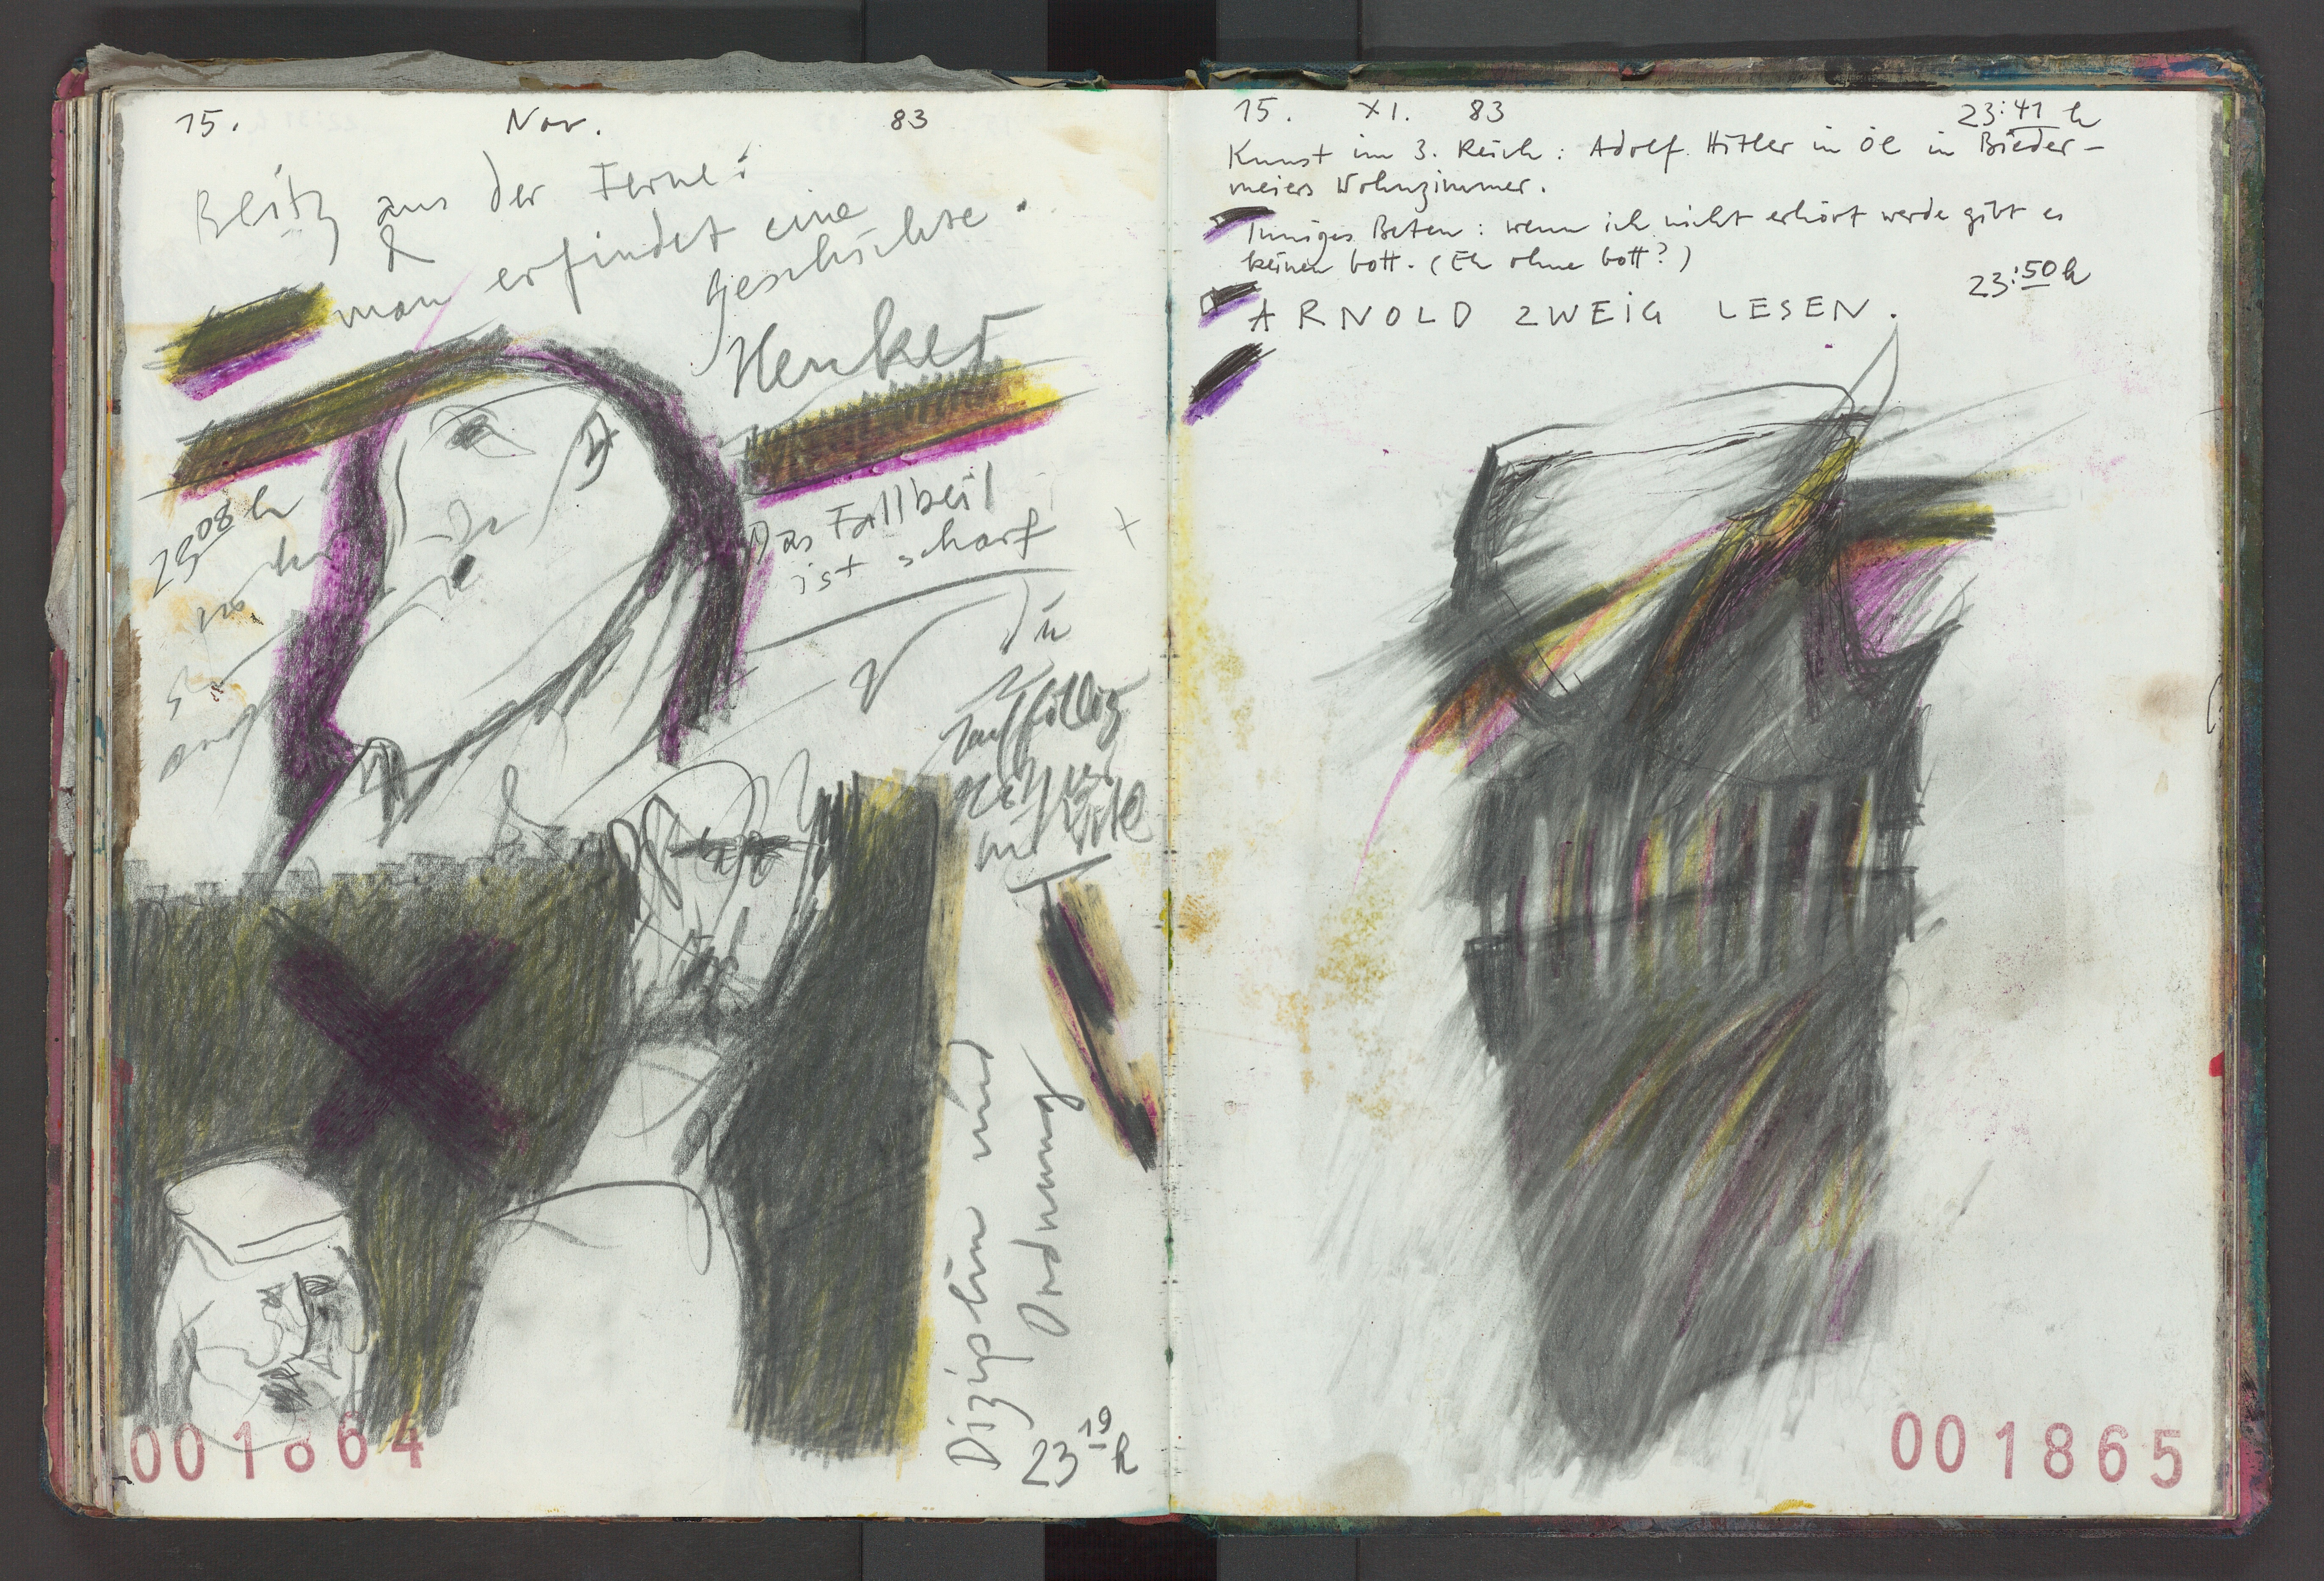 15. Nov. 83
Blitz aus der Ferne:
&
man erfindet eine
Geschichte.
Henker
23 08 h
Das Fallbeil
ist scharf
Disziplin und
Ordnung
23 19 h
001864
15. XI. 83 23:41 h
Kunst im 3. Reich: Adolf Hitler in Öl in Bieder-
meiers Wohnzimmer.
Inniges Beten: wenn ich nicht erhört werde gibt es
keinen Gott. (Eh ohne Gott?)
23:50 h
ARNOLD ZWEIG LESEN.
001865